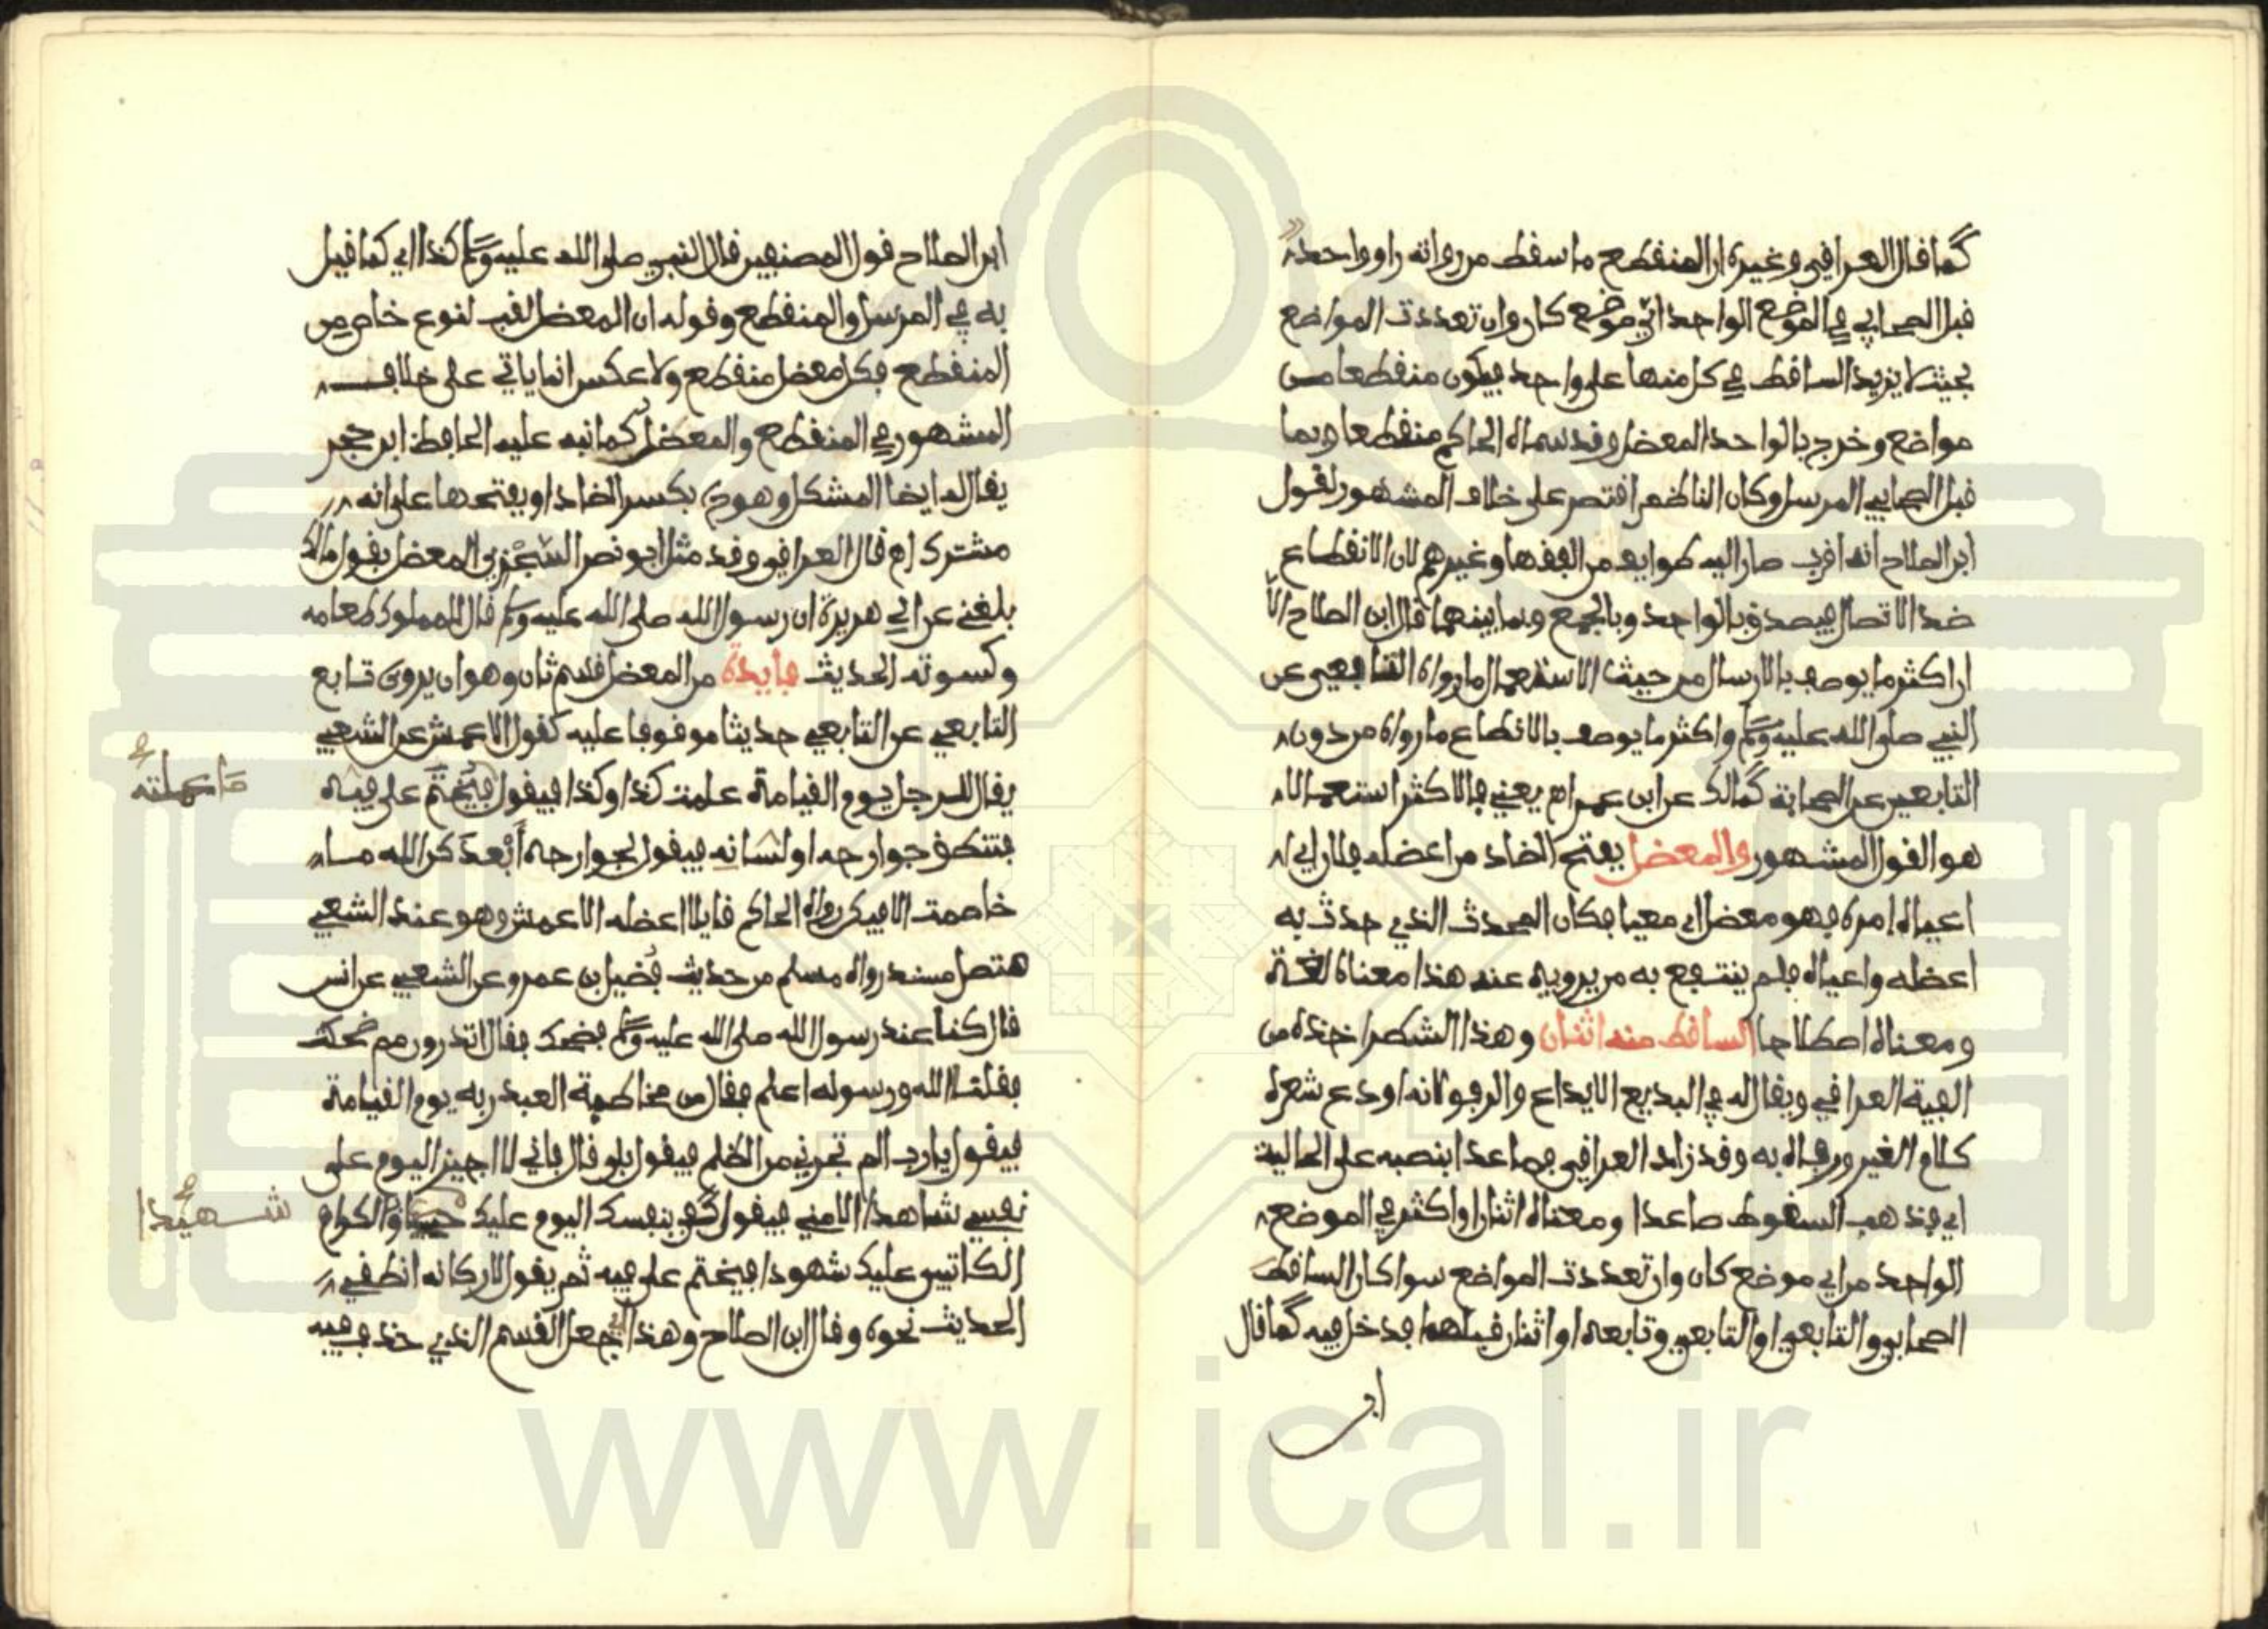 كما قال العراقي وغيره ان المنقطع ما سقط من رواته راو واحد
قبل الصحابي في الموضع الواحد اي موضع كان وان تعددت المواضع
بحيث لا يزيد الساقط في كل منها على واحد فيكون منقطعا من
مواضع وخرج بالواحد المعضل وقد سماه الحاكم منقطعا وبما
قبل الصحابي المرسل وكان الناظم اقتصر على خلاف المشهور لقول
ابن الصلاح انه اقرب صار اليه طوايف من الفقها وغيرهم لان الانقطاع
ضد الاتصال فيصدق بالواحد وبالجمع وبما بينهما قال ابن الصلاح الا
ان اكثر ما يوصف بالارسال من حيث الاستعمال ما رواه التابعي عن
النبي صلى الله عليه وسلم واكثر ما يوصف بالانقطاع ما رواه من دون
التابعين عن الصحابة كمالك عن ابن عمر اه يعني فالاكثر استعمالا
هو القول المشهور والمعضل بفتح الضاد من اعضله فلان اي
اعياه امره فهو معضل اي معيا فكان المحدث الذي حدث به
اعضله واعياه فلم ينتفع به من يرويه عنه هذا معناه لغة
ومعناه اصطلاحا الساقط منه اثنان وهذا الشطر اخذه من
الفية العراقي ويقال له في البديع الايداع والرفو لانه اودع شعره
كلام الغير ورفاه به وقد زاد العراقي فصاعدا بنصبه على الحالية
اي فذهب السقوط صاعدا ومعناه اثنان او اكثر في الموضع
الواحد من اي موضع كان وان تعددت المواضع سوا كان الساقط
الصحابي والتابعي او التابعي وتابعه او اثنان قبلهما فدخل فيه كما قال
ابن
ابن الصلاح قول المصنفين قال النبي صلى الله عليه وسلم كذا اي كما قيل
به في المرسل والمنقطع وقوله ان المعضل لقب لنوع خاص من
المنقطع فكل معضل منقطع ولا عكس انما ياتي على خلاف
المشهور في المنقطع والمعضل كما نبه عليه الحافظ ابن حجر
يقال له ايضا المشكل وهو بكسر الضاد او بفتحها على انه
مشترك اه قال العراقي وقد مثل ابو نصر السجزي المعضل بقول مالك
بلغني عن ابي هريرة ان رسول الله صلى الله عليه وسلم قال للمملوك طعامه
وكسوته الحديث فايدة من المعضل قسم ثان وهو ان يروي تابع
التابعي عن التابعي حديثا موقوفا عليه كقول الاعمش عن الشعبي
يقال للرجل يوم القيامة عملت كذا وكذا فيقول فيختم على فيه
ما عملته
فتنطق جوارحه او لسانه فيقول لجوارحه ابعدكن الله ما
خاصمت الا فيكن رواه الحاكم قايلا اعضله الاعمش وهو عند الشعبي
متصل مسند رواه مسلم من حديث فضيل بن عمرو عن الشعبي عن انس
قال كنا عند رسول الله صلى الله عليه وسلم فضحك فقال اتدرون مم ضحكت
فقلنا الله ورسوله اعلم فقال من مخاطبة العبد ربه يوم القيامة
فيقول يا رب الم تجرني من الظلم فيقول بلى قال فاني لا اجيز اليوم على
نفسي شاهدا الا مني فيقول كفى بنفسك اليوم عليك حسيبا والكرام
شهيدا
الكاتبين عليك شهودا فيختم على فيه ثم يقول لاركانه انطقي
الحديث نحوه وقال ابن الصلاح وهذا اي جعل القسم الذي حذف فيه